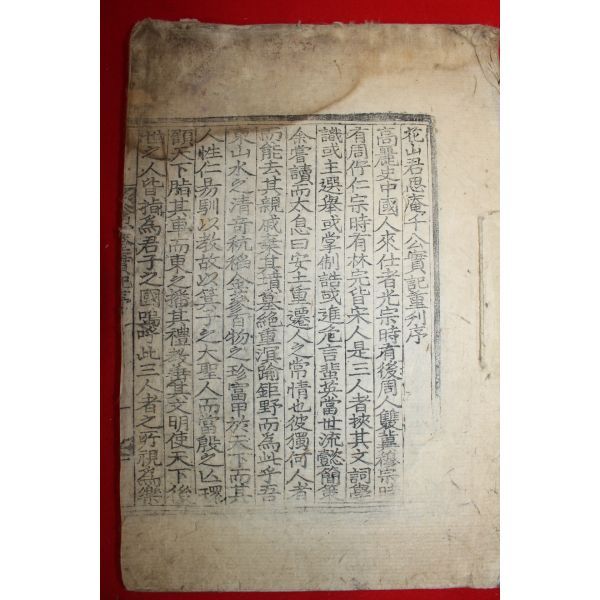 花山君思庵千公實記重刊序
高麗史中國人來仕者光宗時有後周人雙冀穆宗時
有周佇仁宗時有林完皆宋人是三人者挾其文詞學
識或主選擧或掌制誥或進危言蜚英當世流懿簡策
余嘗讀而太息曰安土重遷人之常情也彼獨何人者
而能去其親戚棄其墳墓絶重溟踰鉅野而爲此乎吾
東山水之清奇秔稻金蔘百物之珍富甲於天下而其
人性仁易馴以敎故以箕子之大聖人而當殷之亾環
顧天下脂其車而東之播其禮敎善其文明使天下後
世之人皆指爲君子之國嗚呼此三人者之所視爲樂